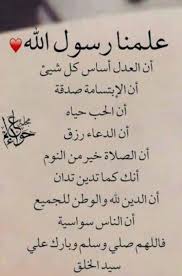 علمنا رسول الله ❤
أن العدل أساس كل شيئ
أن الإبتسامة صدقة
أن الحب حياه
أن الدعاء رزق
أن الصلاة خير من النوم
أنك كما تدين تدان
أن الدين لله والوطن للجميع
أن الناس سواسية
فاللهم صلي وسلم وبارك علي
سيد الخلق